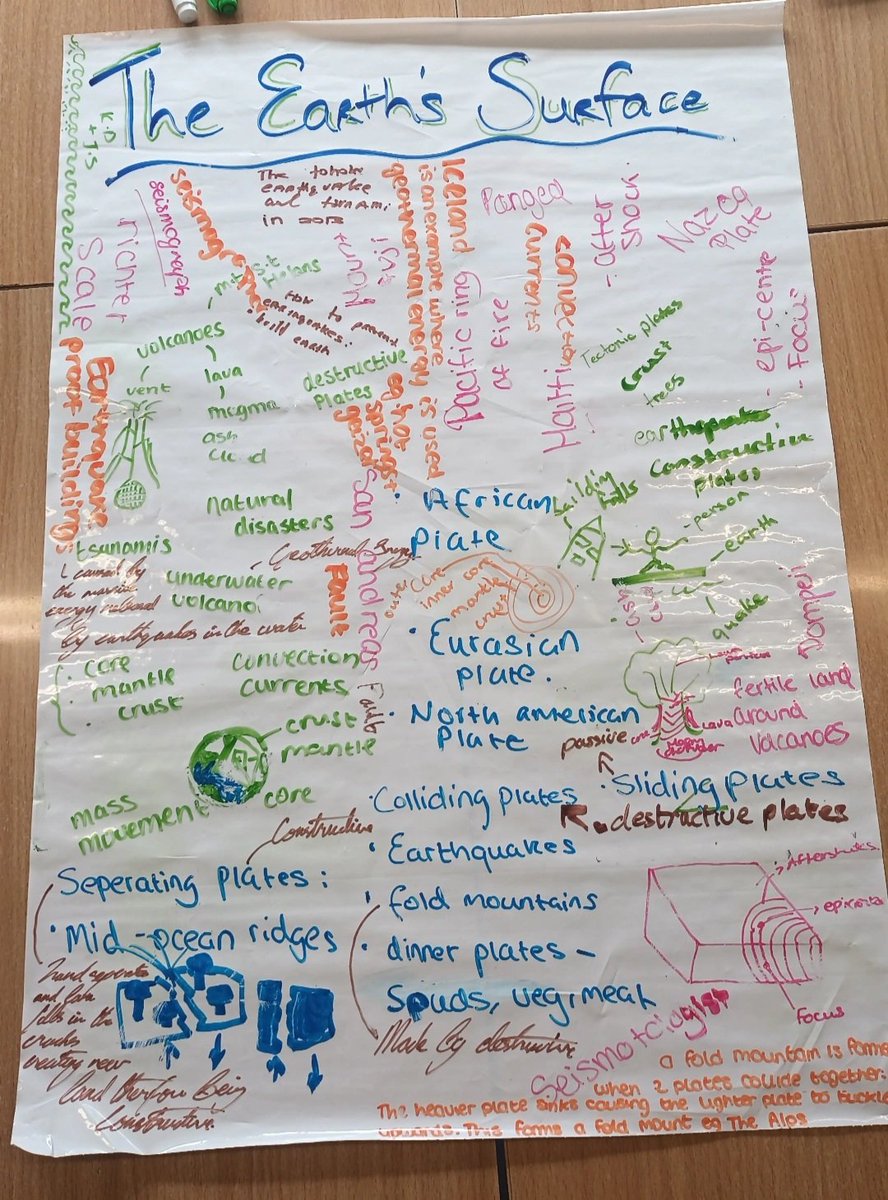 The Earth's Surface
K.D
+ J.S
seismograph
richter
Scale
The tohoku
earthquake
and tsunami
in
Iceland
is an example where
geothermal energy is used
eg hot
springs +
Pangea
convection
currents
- after
shock
Nazca
Plate
- epi-centre
- Focus
Pacific ring
of fire
Haiti
volcanoes
vent
lava
magma
ash
cloud
How to prevent
earthquakes:
destructive
plates
Tectonic plates
Crust
trees
earthquake
Constructive
plates
proof buildings
natural
disasters
San Andreas Fault
Fault
• African
plate
building
falls
person
earth
quake
tsunamis
caused by
the massive
energy released
by earthquakes in the water
underwater
Geothermal Energy
outer core
inner core
mantle
crust
Pompeii
• Eurasian
plate.
• core
• mantle
• crust
convection
currents
• North american
Plate
passive
Lava
fertile land
around
volcanoes
crust
mantle
core
mass
movement
• Sliding plates
• destructive plates
• Colliding plates
Constructive
• Earthquakes
Seperating plates:
• fold mountains
• Mid-ocean ridges
• dinner plates -
Spuds, veg, meat
Made by destructive
and lava
falls in the
cracks
creating new
land therefore being
constructive
Aftershocks
Focus
Seismologist
a fold mountain is forme
when 2 plates collide together.
The heavier plate sinks causing the lighter plate to buckle
upwards. This forms a fold mount eg The Alps